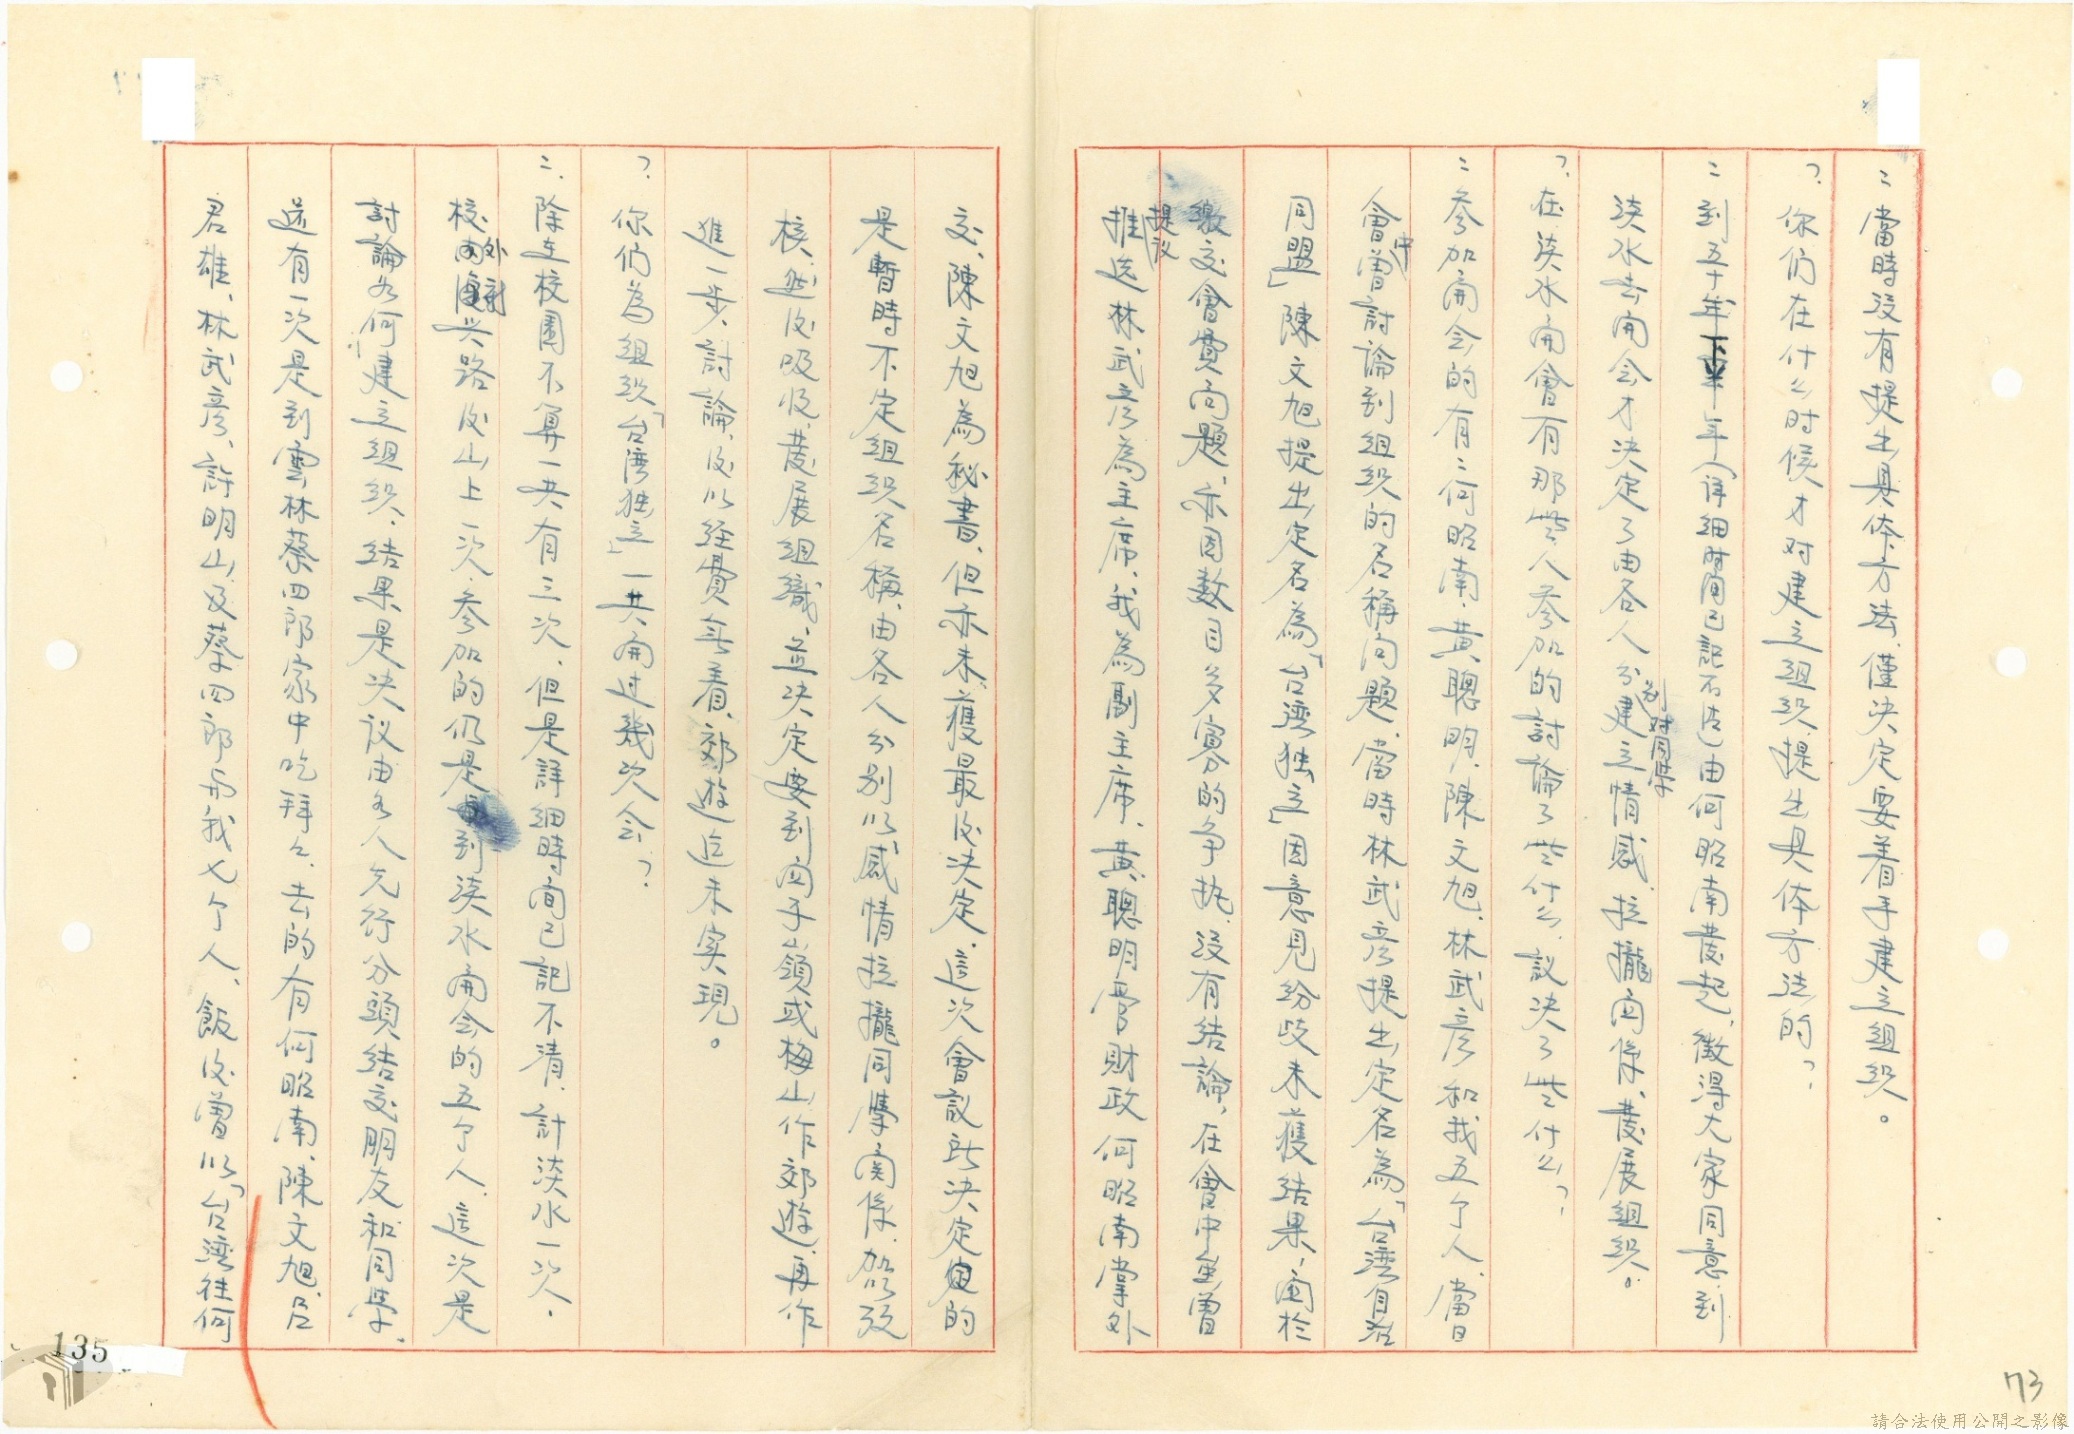 ：當時没有提出具体方法，僅決定要着手建立組织。
？你们在什么时候才对建立組织，提出具体方法的？
：到五十年下半年（详细时间已記不清）由何昭南發起，徵得大家同意，到
淡水去開会，才决定了由各人分别对同学建立情感，拉攏關係，發展組织。
？在淡水開會有那些人參加的討論了些什么，議決了些什么？
：參加開会的有：何昭南，黃聰明，陳文旭，林武彥和我五个人，當日
會中曾討論到組织的名稱问題，當時林武彥提出定名為「台湾自治
同盟」陳文旭提出定名為「台湾独立」因意見紛歧未獲結果，關於
繳交會費问題，亦因数目多寡的争执，没有結論，在會中並曾
提议推选林武彥為主席，我為副主席，黃聰明管財政何昭南掌外
交，陳文旭為秘書，但亦未獲最後决定，這次會議所决定的
是暫時不定組织名稱，由各人分别以感情拉攏同學關係，然後
吸收，發展組織，並决定要到關子嶺或梅山作郊遊，再作
進一步討論，後以経費無着，郊遊迄未实現。
？你们為組织「台湾独立」一共開过幾次会？
：除在校園不算一共有三次，但是詳細時间已記不清，計淡水一次，
校外紹興路後山上一次，參加的仍是到淡水開会的五个人，這次是
討論如何建立組织，結果是决议由各人先行分頭結交朋友和同學，
還有一次是到雲林蔡四郎家中吃拜拜，去的有何昭南，陳文旭，呂
君雄，林武彥，許明山，及蔡四郎与我七个人，飯後曾以「台湾往何
135
73
請合法使用公開之影像